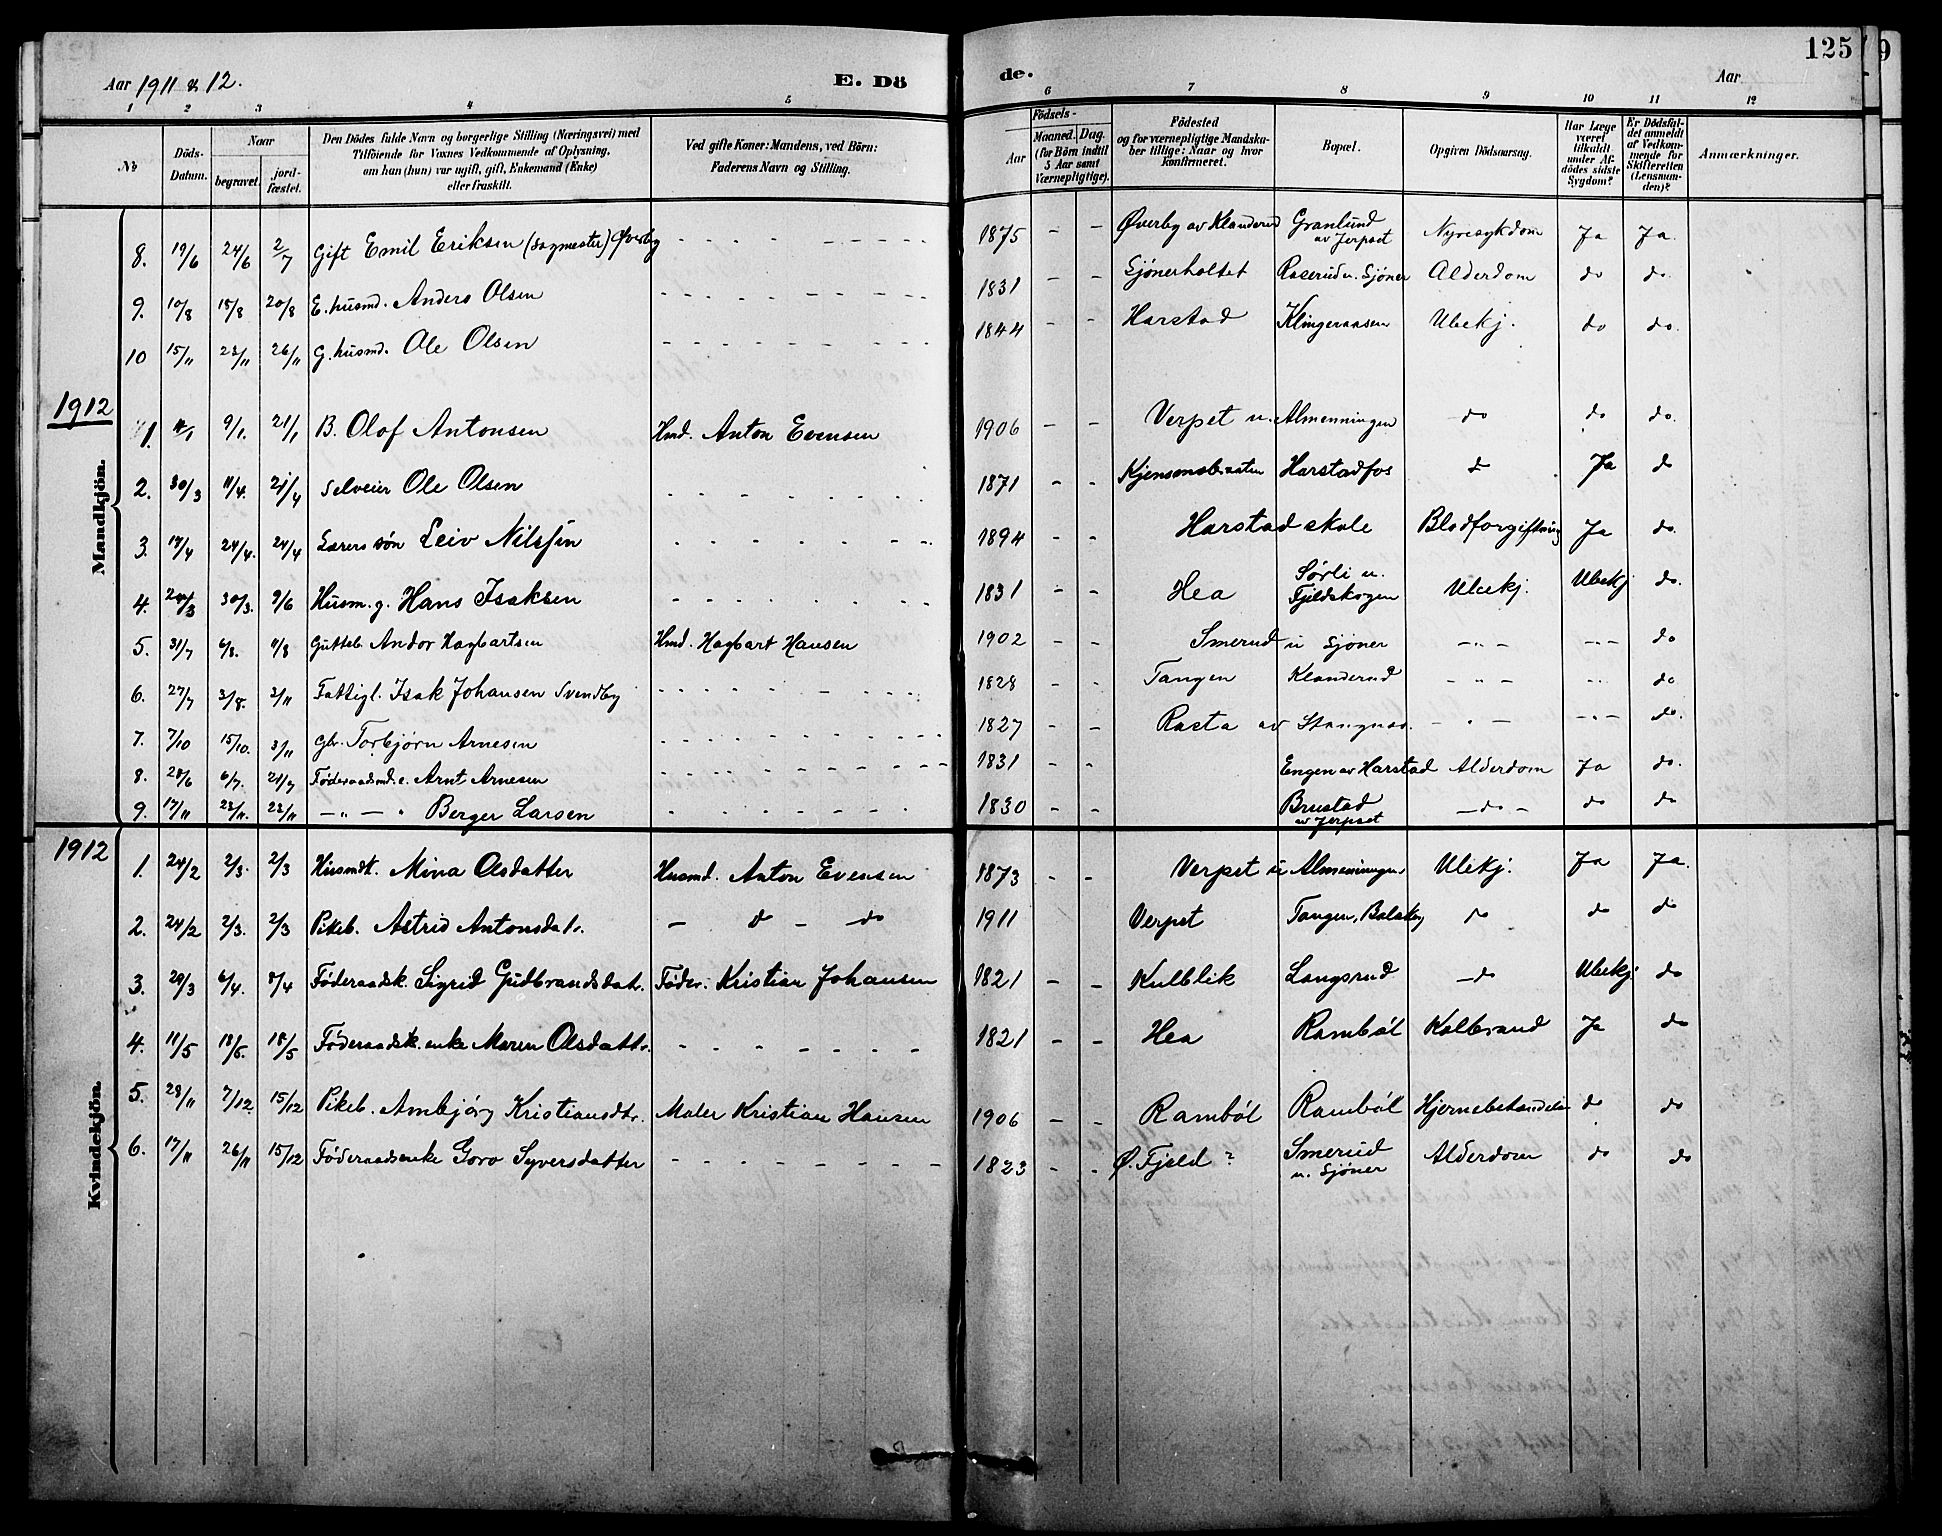 Aar 1911 & 12. E. Dö de. Aar 125 9
1 2 3 4 5 6 7 8 9 10 11 12
No Döds-Datum. Naar begravet. jord-fæstet. Den Dödes fulde Navn og borgerlige Stilling (Næringsvei) med Tilföiende for Voxnes Vedkommende af Oplysning, om han (hun) var ugift, gift, Enkemand (Enke) eller fraskilt. Ved gifte Koner: Mandens, ved Börn: Faderens Navn og Stilling. Födsels- Aar Maaned. Dag. (for Börn indtil 5 Aar samt Værnepligtige). Födested og for værnepligtige Mandskaber tillige: Naar og hvor konfirmeret. Bopæl. Opgiven Dödsaarsag. Har Læge været tilkaldt under Afdödes sidste Sygdom? Er Dödsfaldet anmeldt af Vedkommende for Skifteretten (Lensmanden)? Anmærkninger.
8. 19/6 24/6 2/7 Gift Emil Eriksen (sagmester) Øverby - - - 1875 - - Øverby av Klanderud Granlund av Jerpset Nyresykdom Ja Ja.
9. 10/8 15/8 20/8 E. husmd. Anders Olsen - - - 1831 - - Sjönerholtet Roserud u. Sjöner Alderdom do do.
10 15/11 23/11 26/11 G. husmd. Ole Olsen - - - 1844 - - Harstad Klingeraasen Ubekj. do do.
1912
Mandkjön.
1. 9/1. 21/1 B. Olaf Antonsen Hmd. Anton Evensen 1906 - - Verpet u. Almenningen do do do.
2. 30/3 11/4. 21/4 Selveier Ole Olsen - - - 1871 - - Harstadfos do Ja do
3. 24/4. 24/4 Lærers sön Leiv Nilssen - - - 1894 - - Harstad skole Blodforgiftning Ja do.
4. 30/3. 9/6 Husm. g. Hans Isaksen - - - 1831 - - Hea Sørli u. Fjeldskogen Ubekj. Ubekj do.
5. 31/7 6/8. 11/8 Gutteb. Andor Hagbartsen Hmd. Hagbart Hansen 1902 - - Smerud u Sjöner - " - - " - do
6. 27/7 3/8. 3/11 Fattigl. Isak Johansen Svendby - - - 1828 - - Tangen Klanderud - " - - " - do
7. 7/10 15/10. 3/11 Torbjørn Arnesen - - - 1827 - - Rasta av Stangnes. - " - - " - do.
8. 28/6 6/7. 21/7 Føderaadsmd. e. Arnt Arnesen - - - 1831 - - Engen av Harstad Alderdom Ja do.
9. 17/11 23/11. 23/11 - " - " Berger Larsen - - - 1830 - - Brustad av Jerpset - do - do do
1912
Kvindekjön.
1. 24/2 2/3. 2/3 Husmdt. Mina Olsdatter Husmd. Anton Evensen 1873 - - Verpet u Almenningen Ubekj. Ja Ja.
2. 24/2 2/3. 2/3 Pikeb. Astrid Antonsdatr. - d - do 1911 Verpet Tangen, do do do
3. 6/4. 8/4 Føderaadsk. Sigrid Gudbrandsdatr. Føder. Kristian Johansen 1821 - - Kulblik Langsrud - do Ubekj do
4. 11/5 18/5. 18/5 Føderaadsk. enke Maren Olsdattr. - - - 1821 - - Hea Rambøl Kolbrand Ja do
5. 28/11 7/12 15/12 Pikeb. Ambjörg Kristiansdtr. Maler Kristian Hansen 1906 - - Rambøl Rambøl do do
6. 17/11 26/11 15/12 Føderaadsenke Goro Syversdatter - - - 1823 - - Ø. Fjeld ? Smerud u. Sjöner Alderdom do do